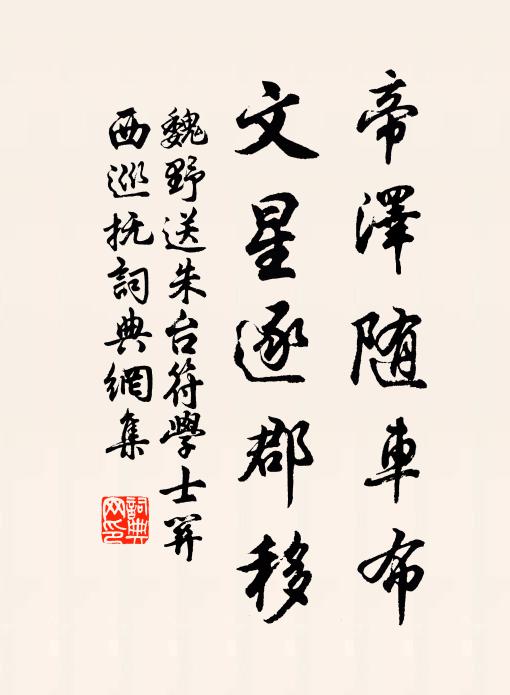 帝澤随車布
文星逐郡移
魏野送朱台符學士畀
西巡抚詞典網集
詞典網印